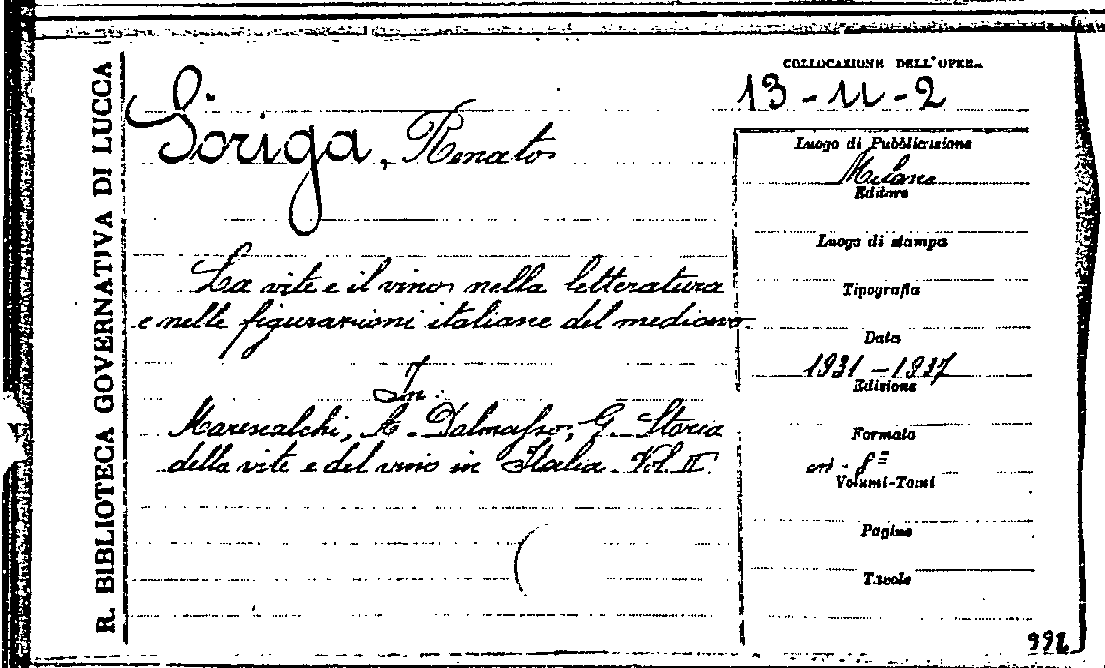 R. BIBLIOTECA GOVERNATIVA DI LUCCA
COLLOCAZIONE DELL'OPERA
13-11-2
Soriga, Renato
Luogo di Pubblicazione
Milano
Editore
Luogo di stampa
La vite e il vino nella letteratura
e nelle figurazioni italiane del medioevo.
Tipografia
Data
1931-1937
Edizione
In:
Marescalchi, A. Dalmasso, G. Storia
della vite e del vino in Italia. Vol. II.
Formato
in-8º
Volumi-Tomi
Pagine
Tavole